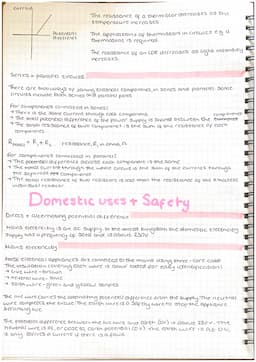 current
potential difference
The resistance of a thermistor decreases as the temperature increases.
The applications of thermistors in circuits e.g. a thermostat is required.
The resistance of an LDR decreases as light intensity increases.
Series + parallel circuits
There are two ways of joining electrical components, in series and parallel. Some circuits include both series and parallel parts.
For components connected in series:
→ there is the same current through each component
→ the total potential difference of the power supply is shared between the components
→ the total resistance of two components is the sum of the resistance of each component.
R total = R1 + R2 resistance, R, in ohms, Ω
For components connected in parallel:
→ the potential difference across each component is the same
→ the total current through the whole circuit is the sum of the currents through the separate components
→ the total resistance of two resistors is less than the resistance of the smallest individual resistor.
Domestic uses + Safety
Direct + alternating potential difference
Mains electricity is an ac supply. In the United Kingdom the domestic electricity supply has a frequency of 50Hz and is about 230V
Mains electricity
Most electrical appliances are connected to the mains using three-core cable.
The insulation covering each wire is colour coded for easy identification:
→ live wire - brown
→ neutral wire - blue
→ earth wire - green and yellow stripes
The live wire carries the alternating potential difference from the supply. The neutral wire completes the circuit. The earth wire is a safety wire to stop the appliance becoming live.
The potential difference between the live wire and earth (0V) is about 230V. The neutral wire is at, or close to, earth potential (0V). The earth wire is at 0V, it only carries a current if there is a fault.